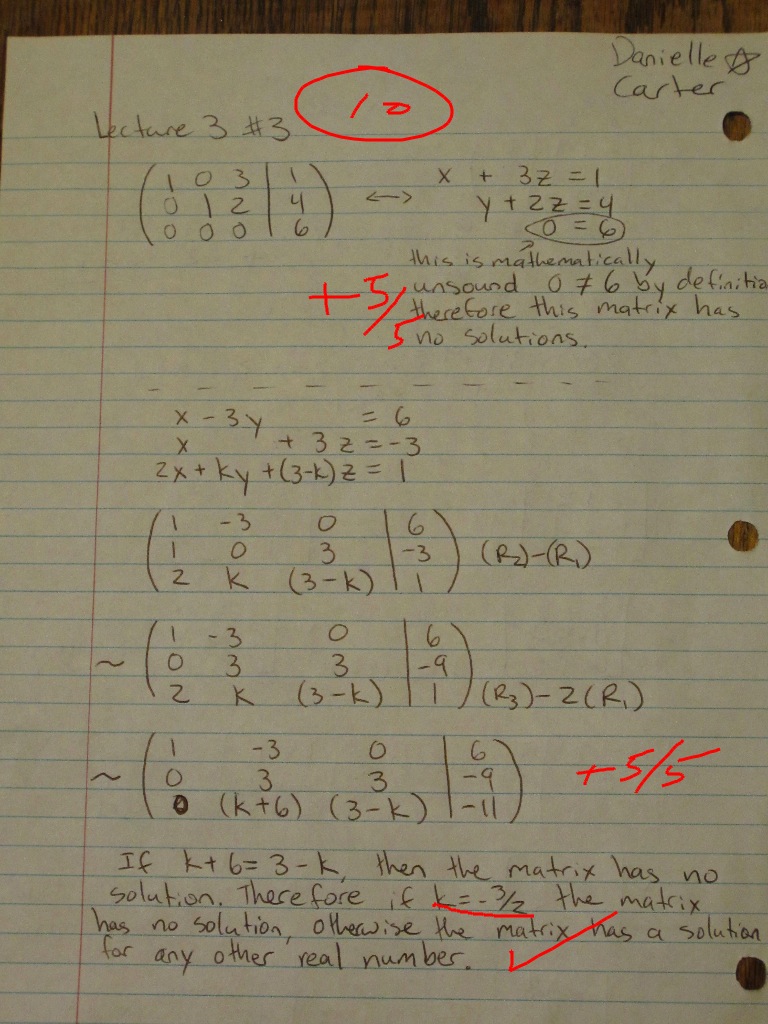 Danielle ☆
Carter
10
Lecture 3 #3
( 1 0 3 | 1 )
( 0 1 2 | 4 )
( 0 0 0 | 6 )
<-->
x + 3z = 1
y + 2z = 4
0 = 6
this is mathematically
unsound 0 ≠ 6 by definitio
therefore this matrix has
no solutions.
+5/5
x - 3y = 6
x + 3z = -3
2x + ky + (3-k)z = 1
( 1 -3 0 | 6 )
( 1 0 3 | -3 ) (R₂)-(R₁)
( 2 k (3-k) | 1 )
( 1 -3 0 | 6 )
~ ( 0 3 3 | -9 )
( 2 k (3-k) | 1 ) (R₃)-2(R₁)
( 1 -3 0 | 6 )
~ ( 0 3 3 | -9 )
( 0 (k+6) (3-k) | -11 )
+5/5
If k+6 = 3-k, then the matrix has no
solution. Therefore if k = -3/2 the matrix
has no solution, otherwise the matrix has a solution
for any other real number. ✓